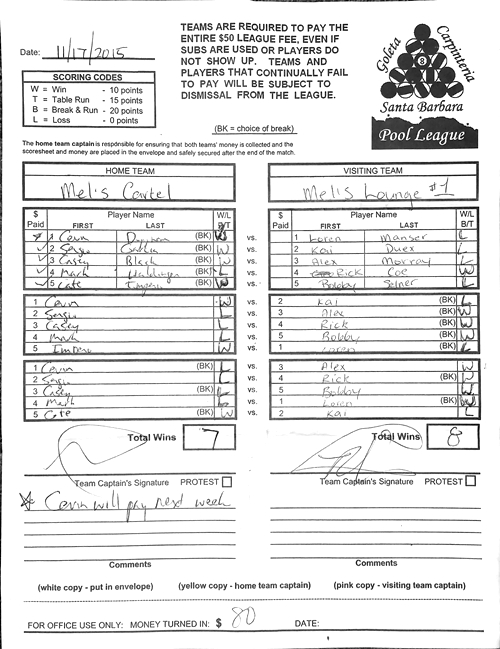 Date: 11/17/2015
TEAMS ARE REQUIRED TO PAY THE
ENTIRE $50 LEAGUE FEE, EVEN IF
SUBS ARE USED OR PLAYERS DO
NOT SHOW UP. TEAMS AND
PLAYERS THAT CONTINUALLY FAIL
TO PAY WILL BE SUBJECT TO
DISMISSAL FROM THE LEAGUE.
(BK = choice of break)
Goleta Carpinteria
8
Santa Barbara
Pool League
SCORING CODES
W = Win - 10 points
T = Table Run - 15 points
B = Break & Run - 20 points
L = Loss - 0 points
The home team captain is responsible for ensuring that both teams' money is collected and the
scoresheet and money are placed in the envelope and safely secured after the end of the match.
HOME TEAM VISITING TEAM
Mel's Cartel Mel's Lounge #1
$ Paid Player Name FIRST LAST W/L B/T $ Paid Player Name FIRST LAST W/L B/T
1 Cevin (BK) W vs. 1 Loren Manser L
2 Sergio (BK) W vs. 2 Kai Duex L
3 Casey Black (BK) W vs. 3 Alex Morray L
4 Mark (BK) L vs. 4 Rick Coe W
5 Cate (BK) W vs. 5 Bobby Selner L
1 Cevin W vs. 2 Kai (BK) L
2 Sergio L vs. 3 Alex (BK) W
3 Casey L vs. 4 Rick (BK) W
4 Mark L vs. 5 Bobby (BK) W
5 W vs. 1 Loren (BK) L
1 Cevin (BK) L vs. 3 Alex W
2 Sergio L vs. 4 Rick (BK) W
3 Casey (BK) L vs. 5 Bobby W
4 Mark L vs. 1 Loren (BK) W
5 Cate (BK) W vs. 2 Kai L
Total Wins 7 Total Wins 8
Team Captain's Signature PROTEST Team Captain's Signature PROTEST
Cevin will pay next week
Comments Comments
(white copy - put in envelope) (yellow copy - home team captain) (pink copy - visiting team captain)
FOR OFFICE USE ONLY: MONEY TURNED IN: $ 80 DATE:
1